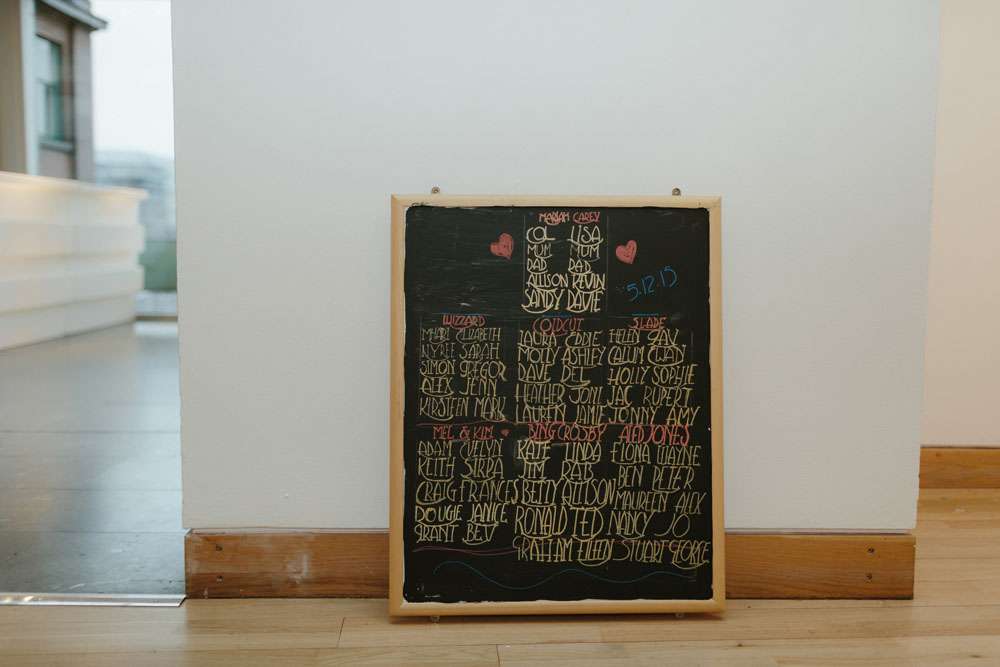 MARIAH CAREY
COL LISA
MUM MUM
DAD DAD
ALLISON KEVIN
SANDY DAVIE
5.12.15
WIZZARD
MHARI ELIZABETH
NYREE SARAH
SIMON GREGOR
ALEX JENN
KIRSTEEN MARK
COLDCUT
LAURA EDDIE
MOLLY ASHLEY
DAVE DEL
HEATHER JONI
LAUREN JAMIE
SLADE
HELEN GAV
CALUM EWAN
HOLLY SOPHIE
JAC RUPERT
JONNY AMY
MEL & KIM
ADAM EVELYN
KEITH
CRAIG FRANCES
DOUGIE JANICE
GRANT BEV
BING CROSBY
KATE LINDA
JIM RAB
BETTY ALLISON
RONALD TED
GRAHAM EILEEN
ALED JONES
FIONA WAYNE
BEN PETER
MAUREEN ALEX
NANCY JO
STUART GEORGE